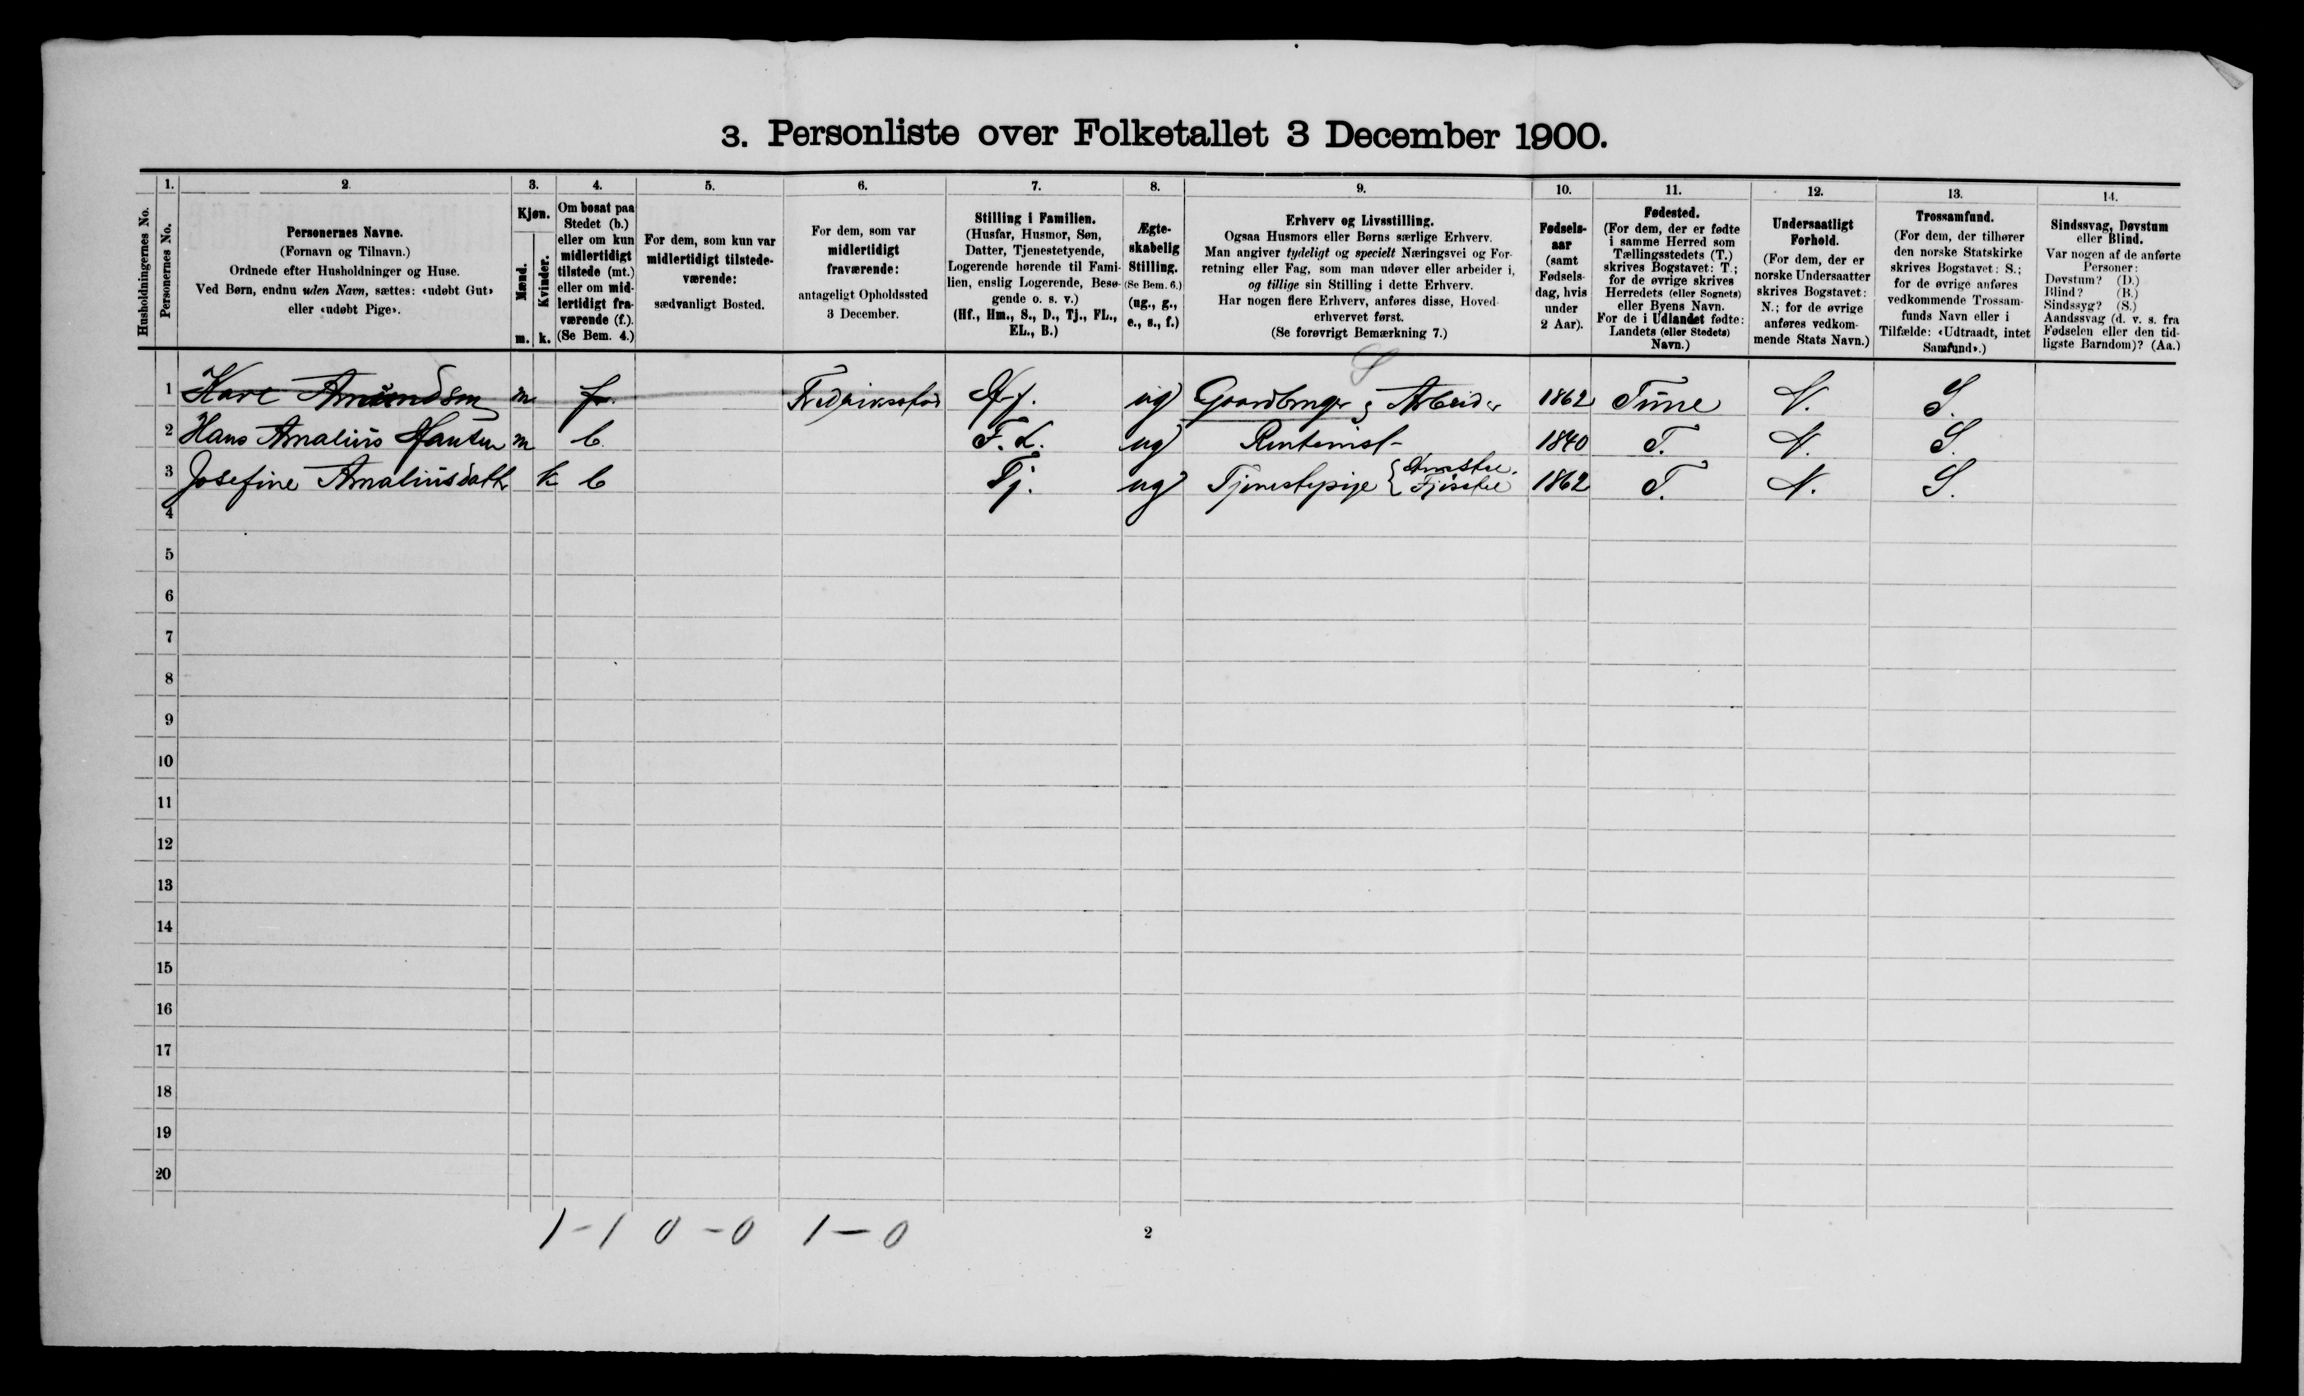 3. Personliste over Folketallet 3 December 1900.
Husholdningernes No.
1.
Personernes No.
2.
Personernes Navne.
(Fornavn og Tilnavn.)
Ordnede efter Husholdninger og Huse.
Ved Børn, endnu uden Navn, sættes: «udøbt Gut»
eller «udøbt Pige».
3.
Kjøn.
Mænd.
Kvinder.
m. k.
4.
Om bosat paa
Stedet (b.)
eller om kun
midlertidigt
tilstede (mt.)
eller om mid-
lertidigt fra-
værende (f.).
(Se Bem. 4.)
5.
For dem, som kun var
midlertidigt tilstede-
værende:
sædvanligt Bosted.
6.
For dem, som var
midlertidigt
fraværende:
antageligt Opholdssted
3 December.
7.
Stilling i Familien.
(Husfar, Husmor, Søn,
Datter, Tjenestetyende,
Logerende hørende til Fami-
lien, enslig Logerende, Besø-
gende o. s. v.)
(Hf., Hm., S., D., Tj., FL.,
EL., B.)
8.
Ægte-
skabelig
Stilling.
(Se Bem. 6.)
(ug., g.,
e., s., f.)
9.
Erhverv og Livsstilling.
Ogsaa Husmors eller Børns særlige Erhverv.
Man angiver tydeligt og specielt Næringsvei og For-
retning eller Fag, som man udøver eller arbeider i,
og tillige sin Stilling i dette Erhverv.
Har nogen flere Erhverv, anføres disse, Hoved-
erhvervet først.
(Se forøvrigt Bemærkning 7.)
10.
Fødsels-
aar
(samt
Fødsels-
dag, hvis
under
2 Aar).
11.
Fødested.
(For dem, der er fødte
i samme Herred som
Tællingsstedets (T.)
skrives Bogstavet: T.;
for de øvrige skrives
Herredets (eller Sognets)
eller Byens Navn.
For de i Udlandet fødte:
Landets (eller Stedets)
Navn.)
12.
Undersaatligt
Forhold.
(For dem, der er
norske Undersaatter
skrives Bogstavet:
N.; for de øvrige
anføres vedkom-
mende Stats Navn.)
13.
Trossamfund.
(For dem, der tilhører
den norske Statskirke
skrives Bogstavet: S.;
for de øvrige anføres
vedkommende Trossam-
funds Navn eller i
Tilfælde: «Udtraadt, intet
Samfund».)
14.
Sindssvag, Døvstum
eller Blind.
Var nogen af de anførte
Personer:
Døvstum? (D.)
Blind? (B.)
Sindssyg? (S.)
Aandssvag (d. v. s. fra
Fødselen eller den tid-
ligste Barndom)? (Aa.)
S
1 Karl Amundsen m f. Fredriksstad Hf. ug Gaardbruger og Arbeider 1862 Tune N. S.
2 Hans Amalius Hansen m b F. L. ug Rentenist 1840 T. N. S.
3 Josefine Amaliusdatter k b Tj. ug Tjenestepige { Fjøsstel 1862 T. N. S.
4
5
6
7
8
9
10
11
12
13
14
15
16
17
18
19
20
1-1 0-0 1-0
2